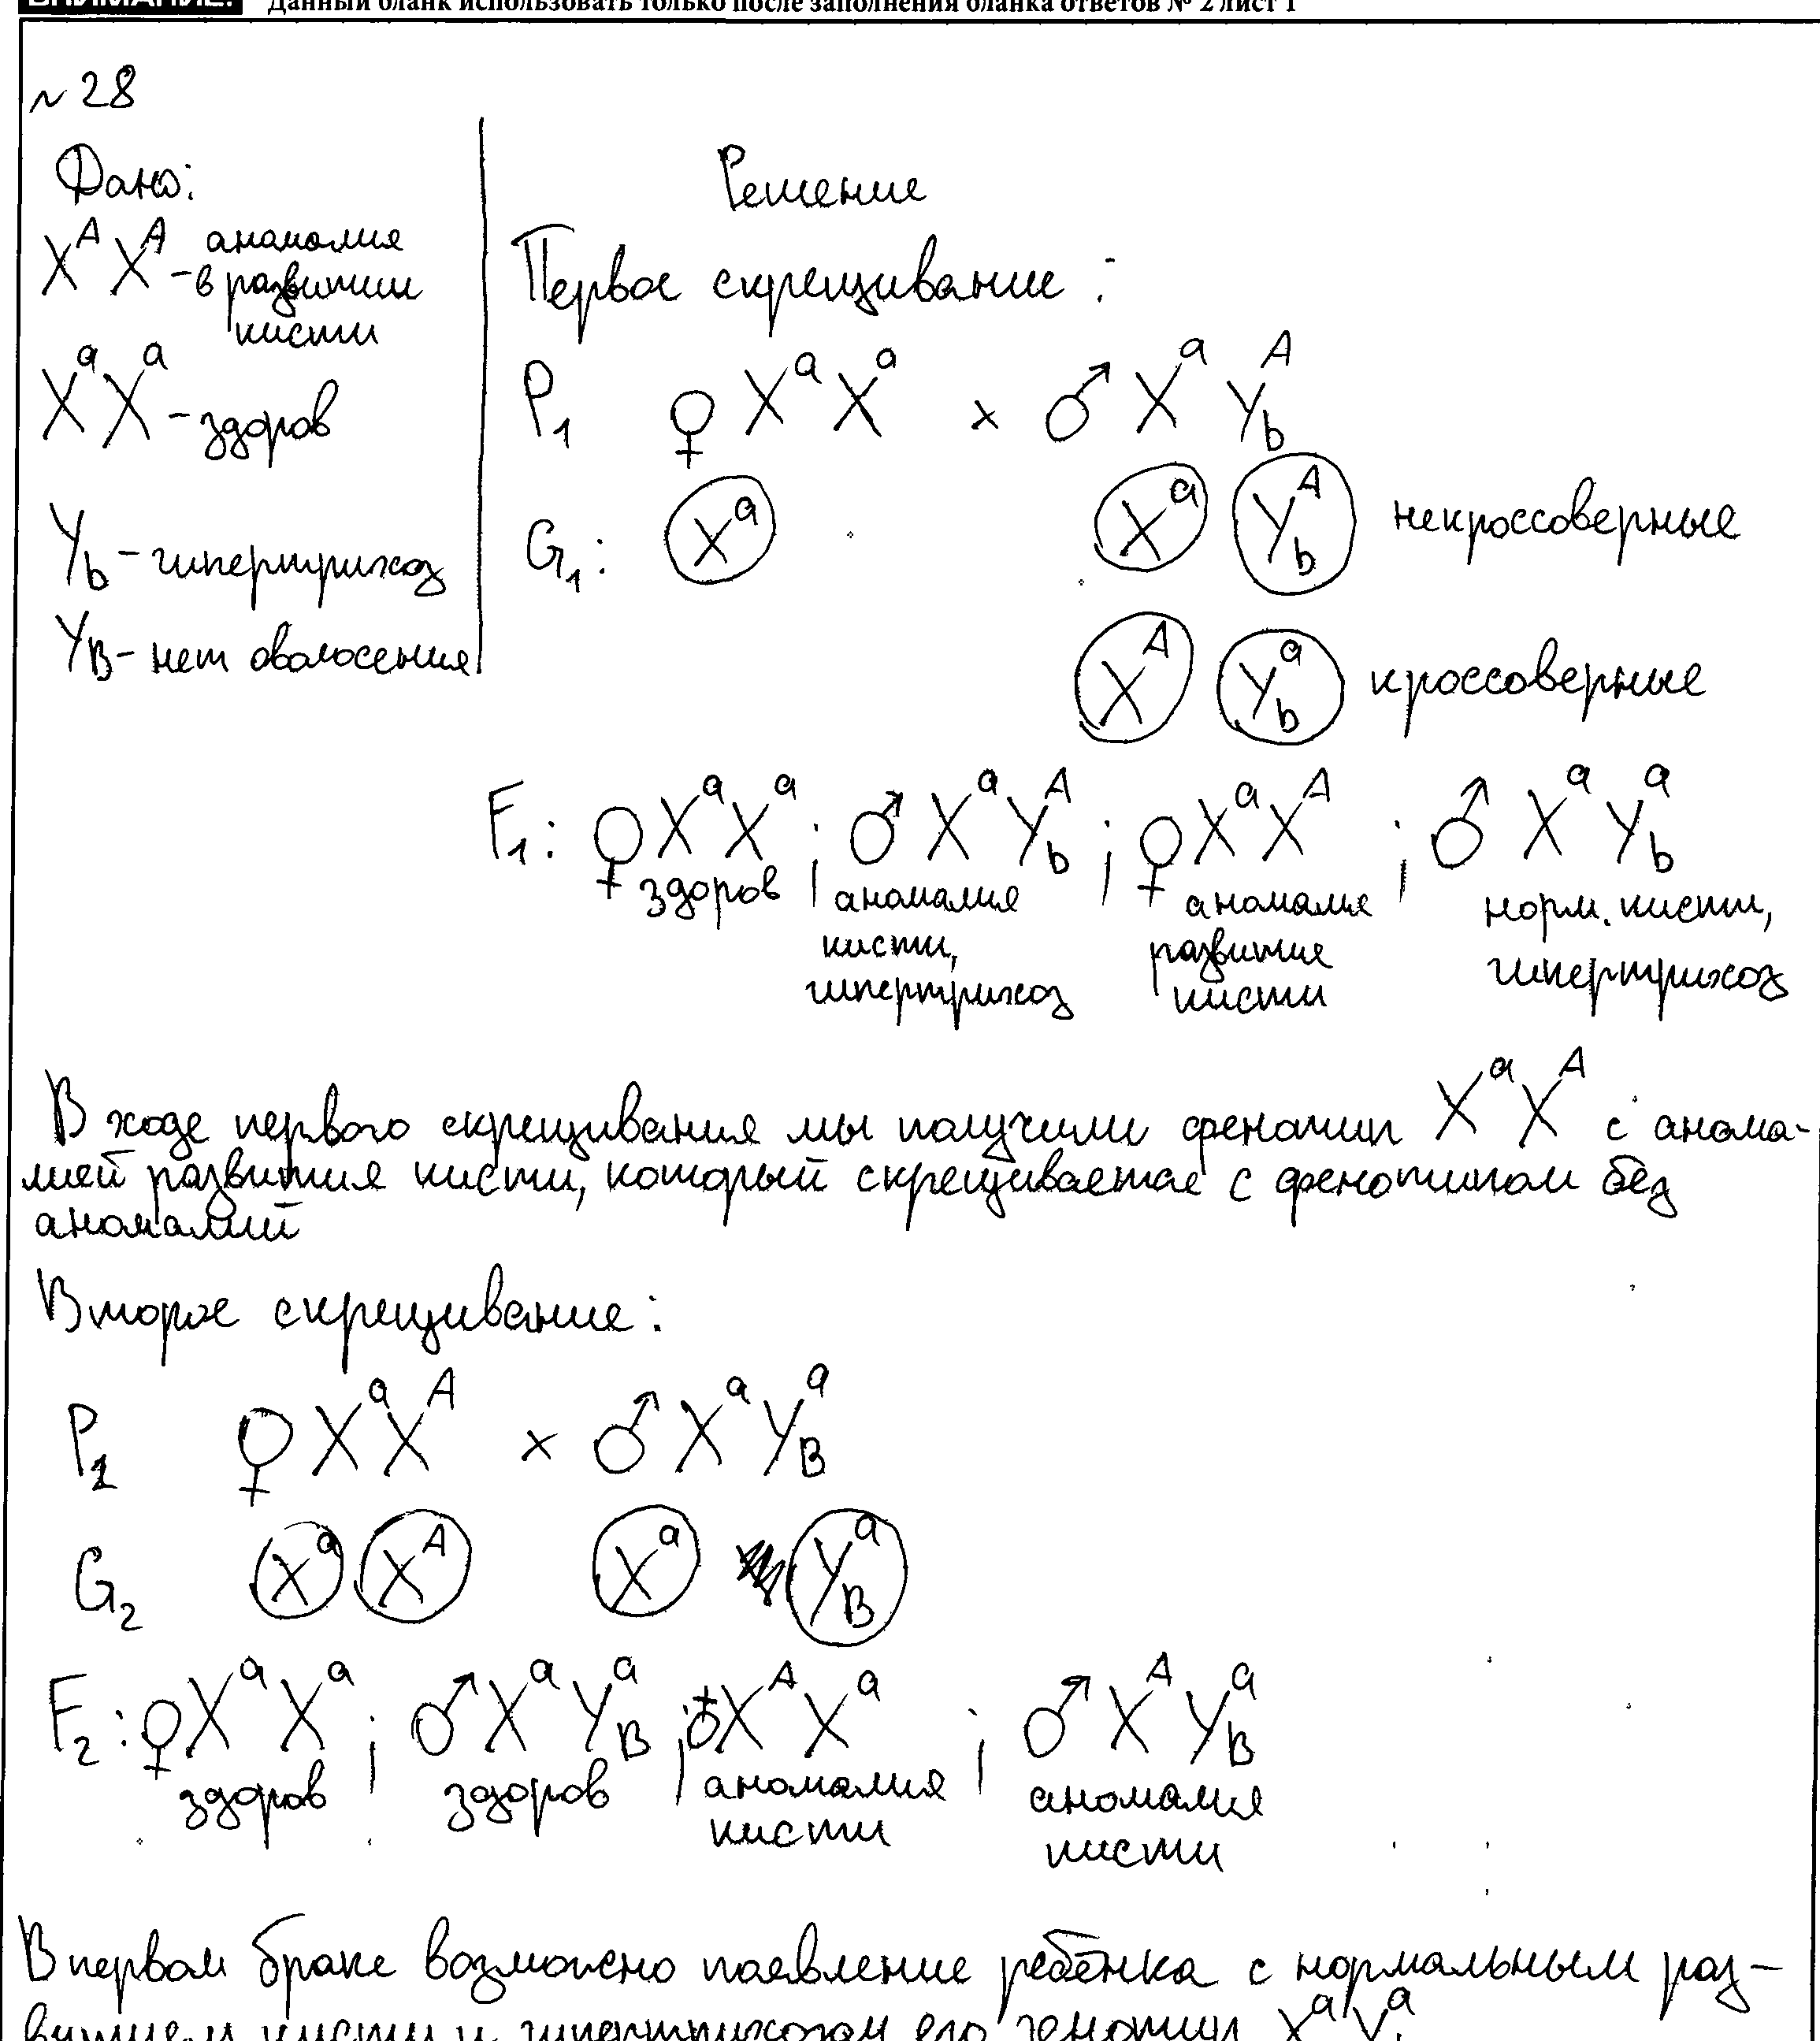 ВНИМАНИЕ! Данный бланк использовать только после заполнения бланка ответов № 2 лист 1
~ 28
Дано:
X^A X^A - аномалия
в развитии
кисти
X^a X^a - здоров
Y_b - гипертрихоз
Y_B - нет оволосения
Решение
Первое скрещивание:
P_1 ♀ X^a X^a × ♂ X^a Y_b^A
G_1: X^a X^a Y_b^A некроссоверные
X^A Y_b^a кроссоверные
F_1: ♀ X^a X^a ; ♂ X^a Y_b^A ; ♀ X^a X^A ; ♂ X^a Y_b^a
здоров | аномалия аномалия норм. кисти,
кисти, развитие гипертрихоз
гипертрихоз кисти
В ходе первого скрещивания мы получили фенотип X^a X^A с анома-
лией развития кисти, который скрещивается с фенотипом без
аномалий
Второе скрещивание:
P_2 ♀ X^a X^A × ♂ X^a Y_B^a
G_2 X^a X^A X^a Y_B^a
F_2: ♀ X^a X^a ; ♂ X^a Y_B^a ; ♀ X^A X^a ; ♂ X^A Y_B^a
здоров здоров аномалия аномалия
кисти кисти
В первом браке возможно появление ребёнка с нормальным раз-
витием кисти и гипертрихозом его генотип X^a Y_b^a